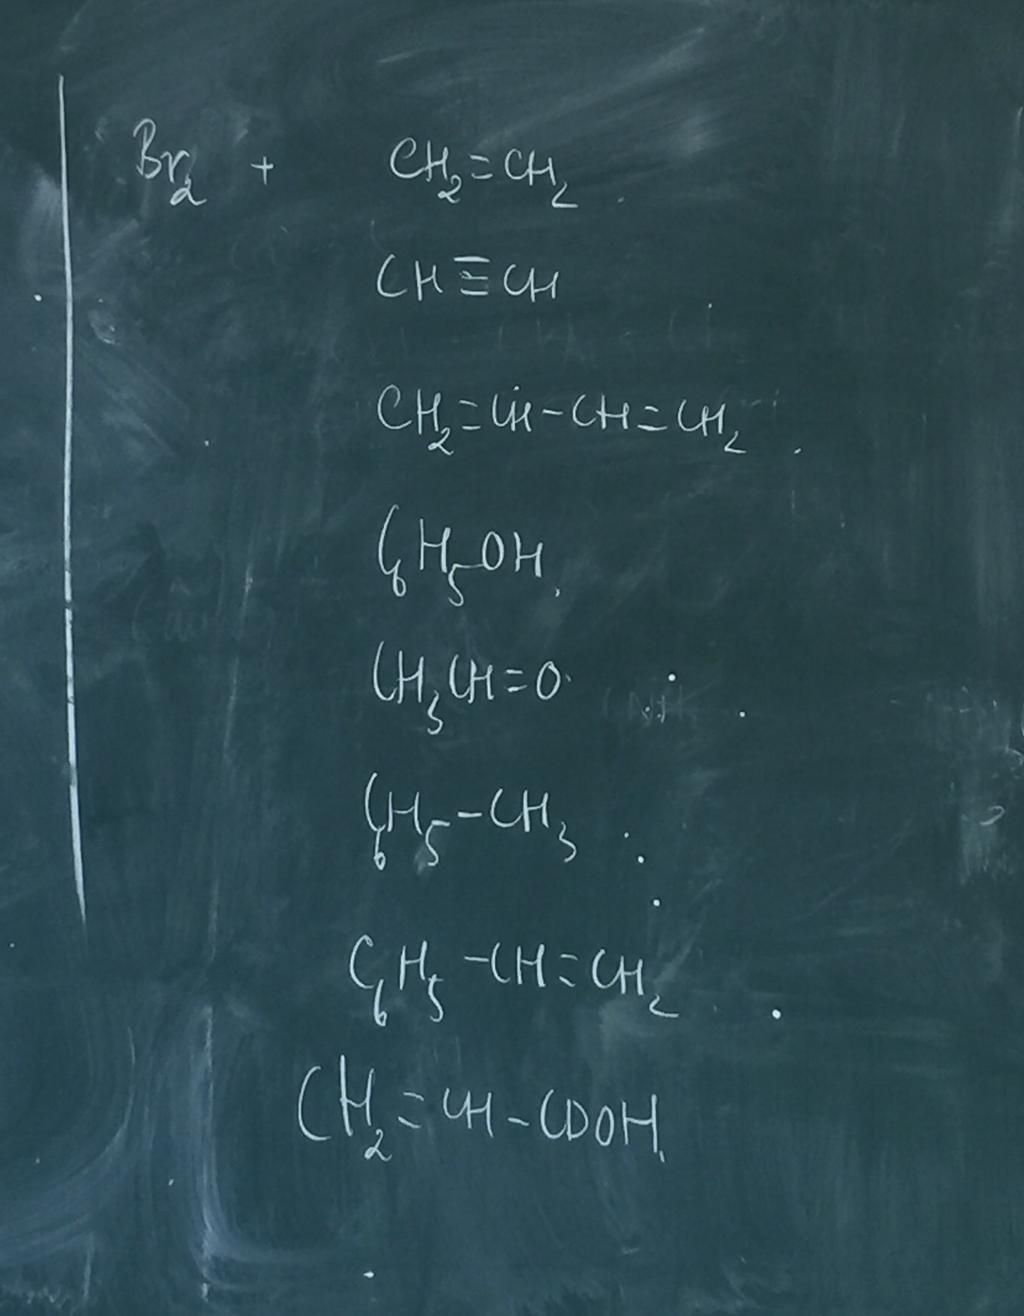 Br₂ + CH₂=CH₂
CH≡CH
CH₂=CH-CH=CH₂
C₆H₅OH
CH₃CH=O
C₆H₅-CH₃
C₆H₅-CH=CH₂
CH₂=CH-COOH